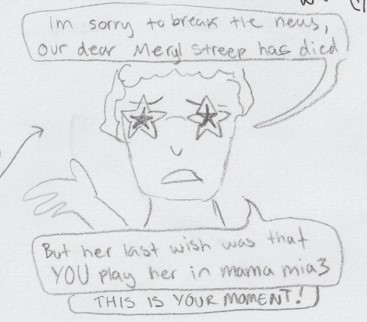 Im sorry to break the news,
our dear Meryl Streep has died
But her last wish was that
YOU play her in mama mia3
THIS IS YOUR MOMENT!